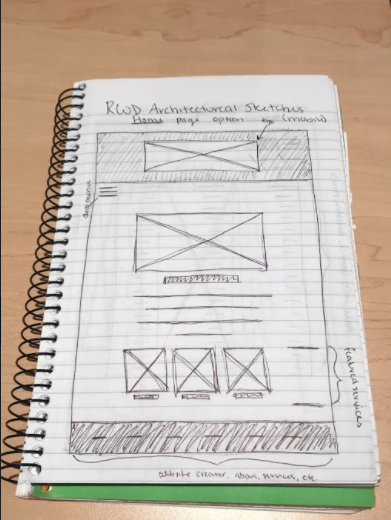 RWD Architectureal Sketches
Home page option (mobile)
drop menu
featured services
website creater, about, services, etc.